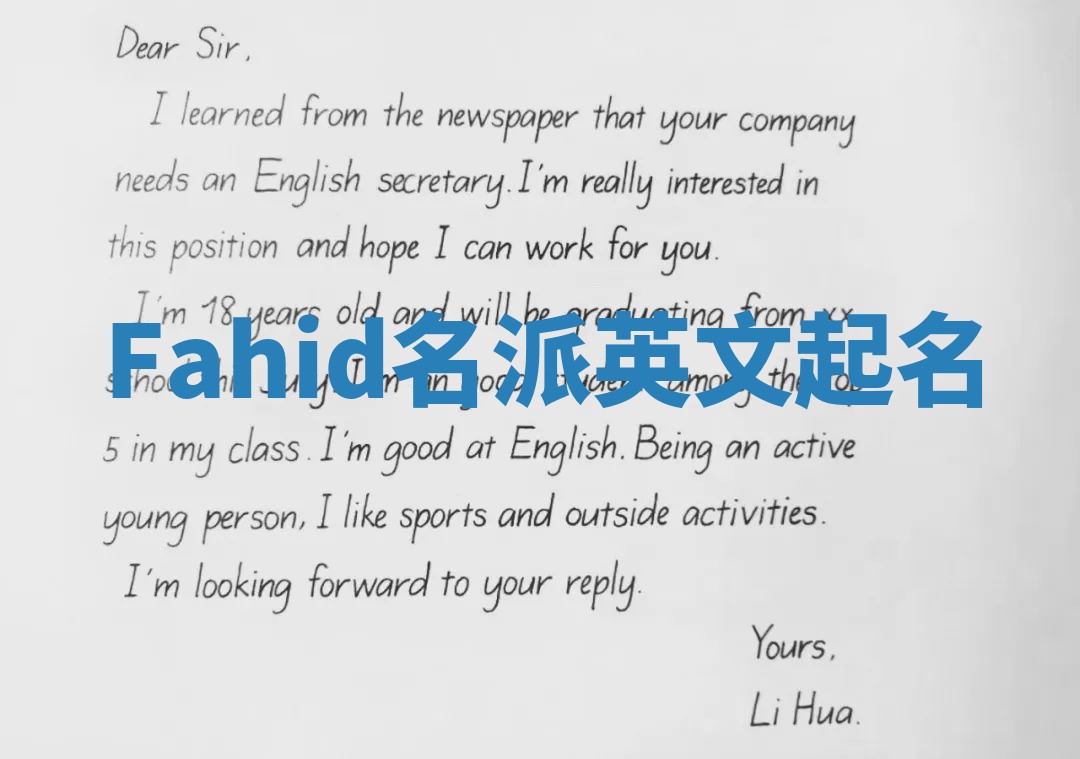 Dear Sir,
I learned from the newspaper that your company
needs an English secretary. I'm really interested in
this position and hope I can work for you.
I'm 18 years old and will be graduating from xx
Fahid名派英文起名
5 in my class. I'm good at English. Being an active
young person, I like sports and outside activities.
I'm looking forward to your reply.
Yours,
Li Hua.